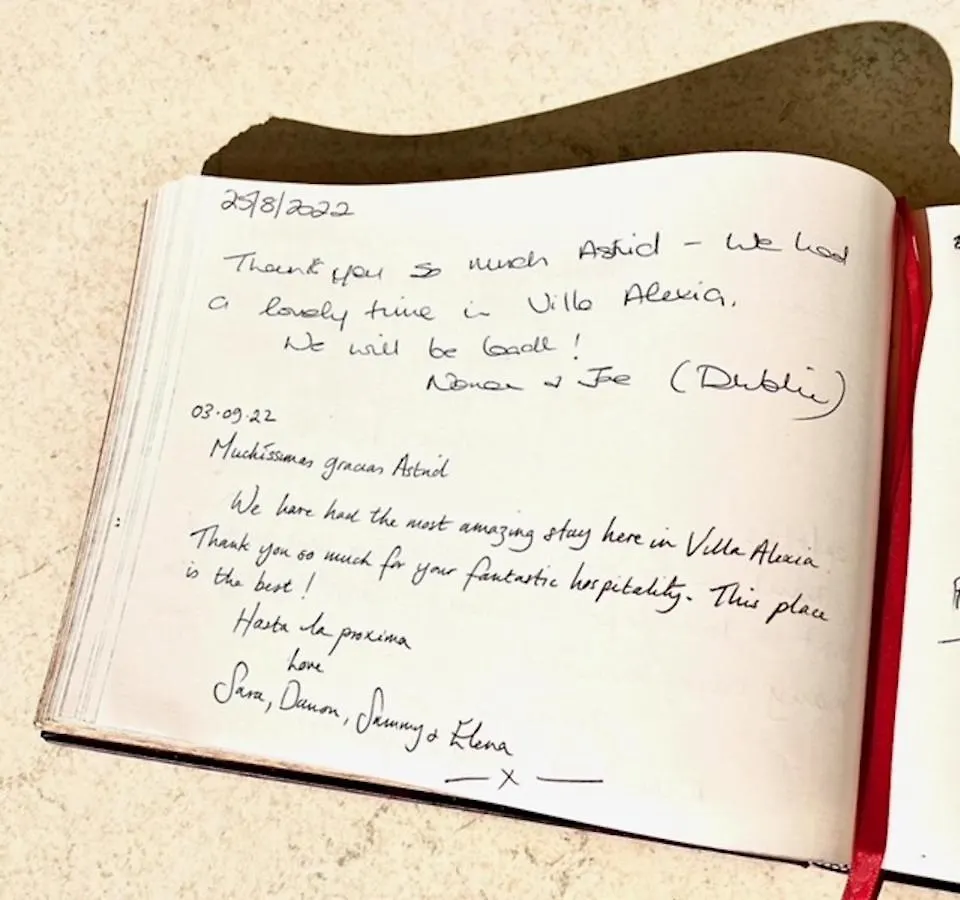 25/8/2022
Thank you so much Astrid - We had
a lovely time in Villa Alexia.
We will be back!
& Joe (Dublin)
03.09.22
Muchíssimas gracias Astrid
We have had the most amazing stay here in Villa Alexia.
Thank you so much for your fantastic hospitality. This place
is the best!
Hasta la proxima
Love
Sara, Sammy & Elena
— x —